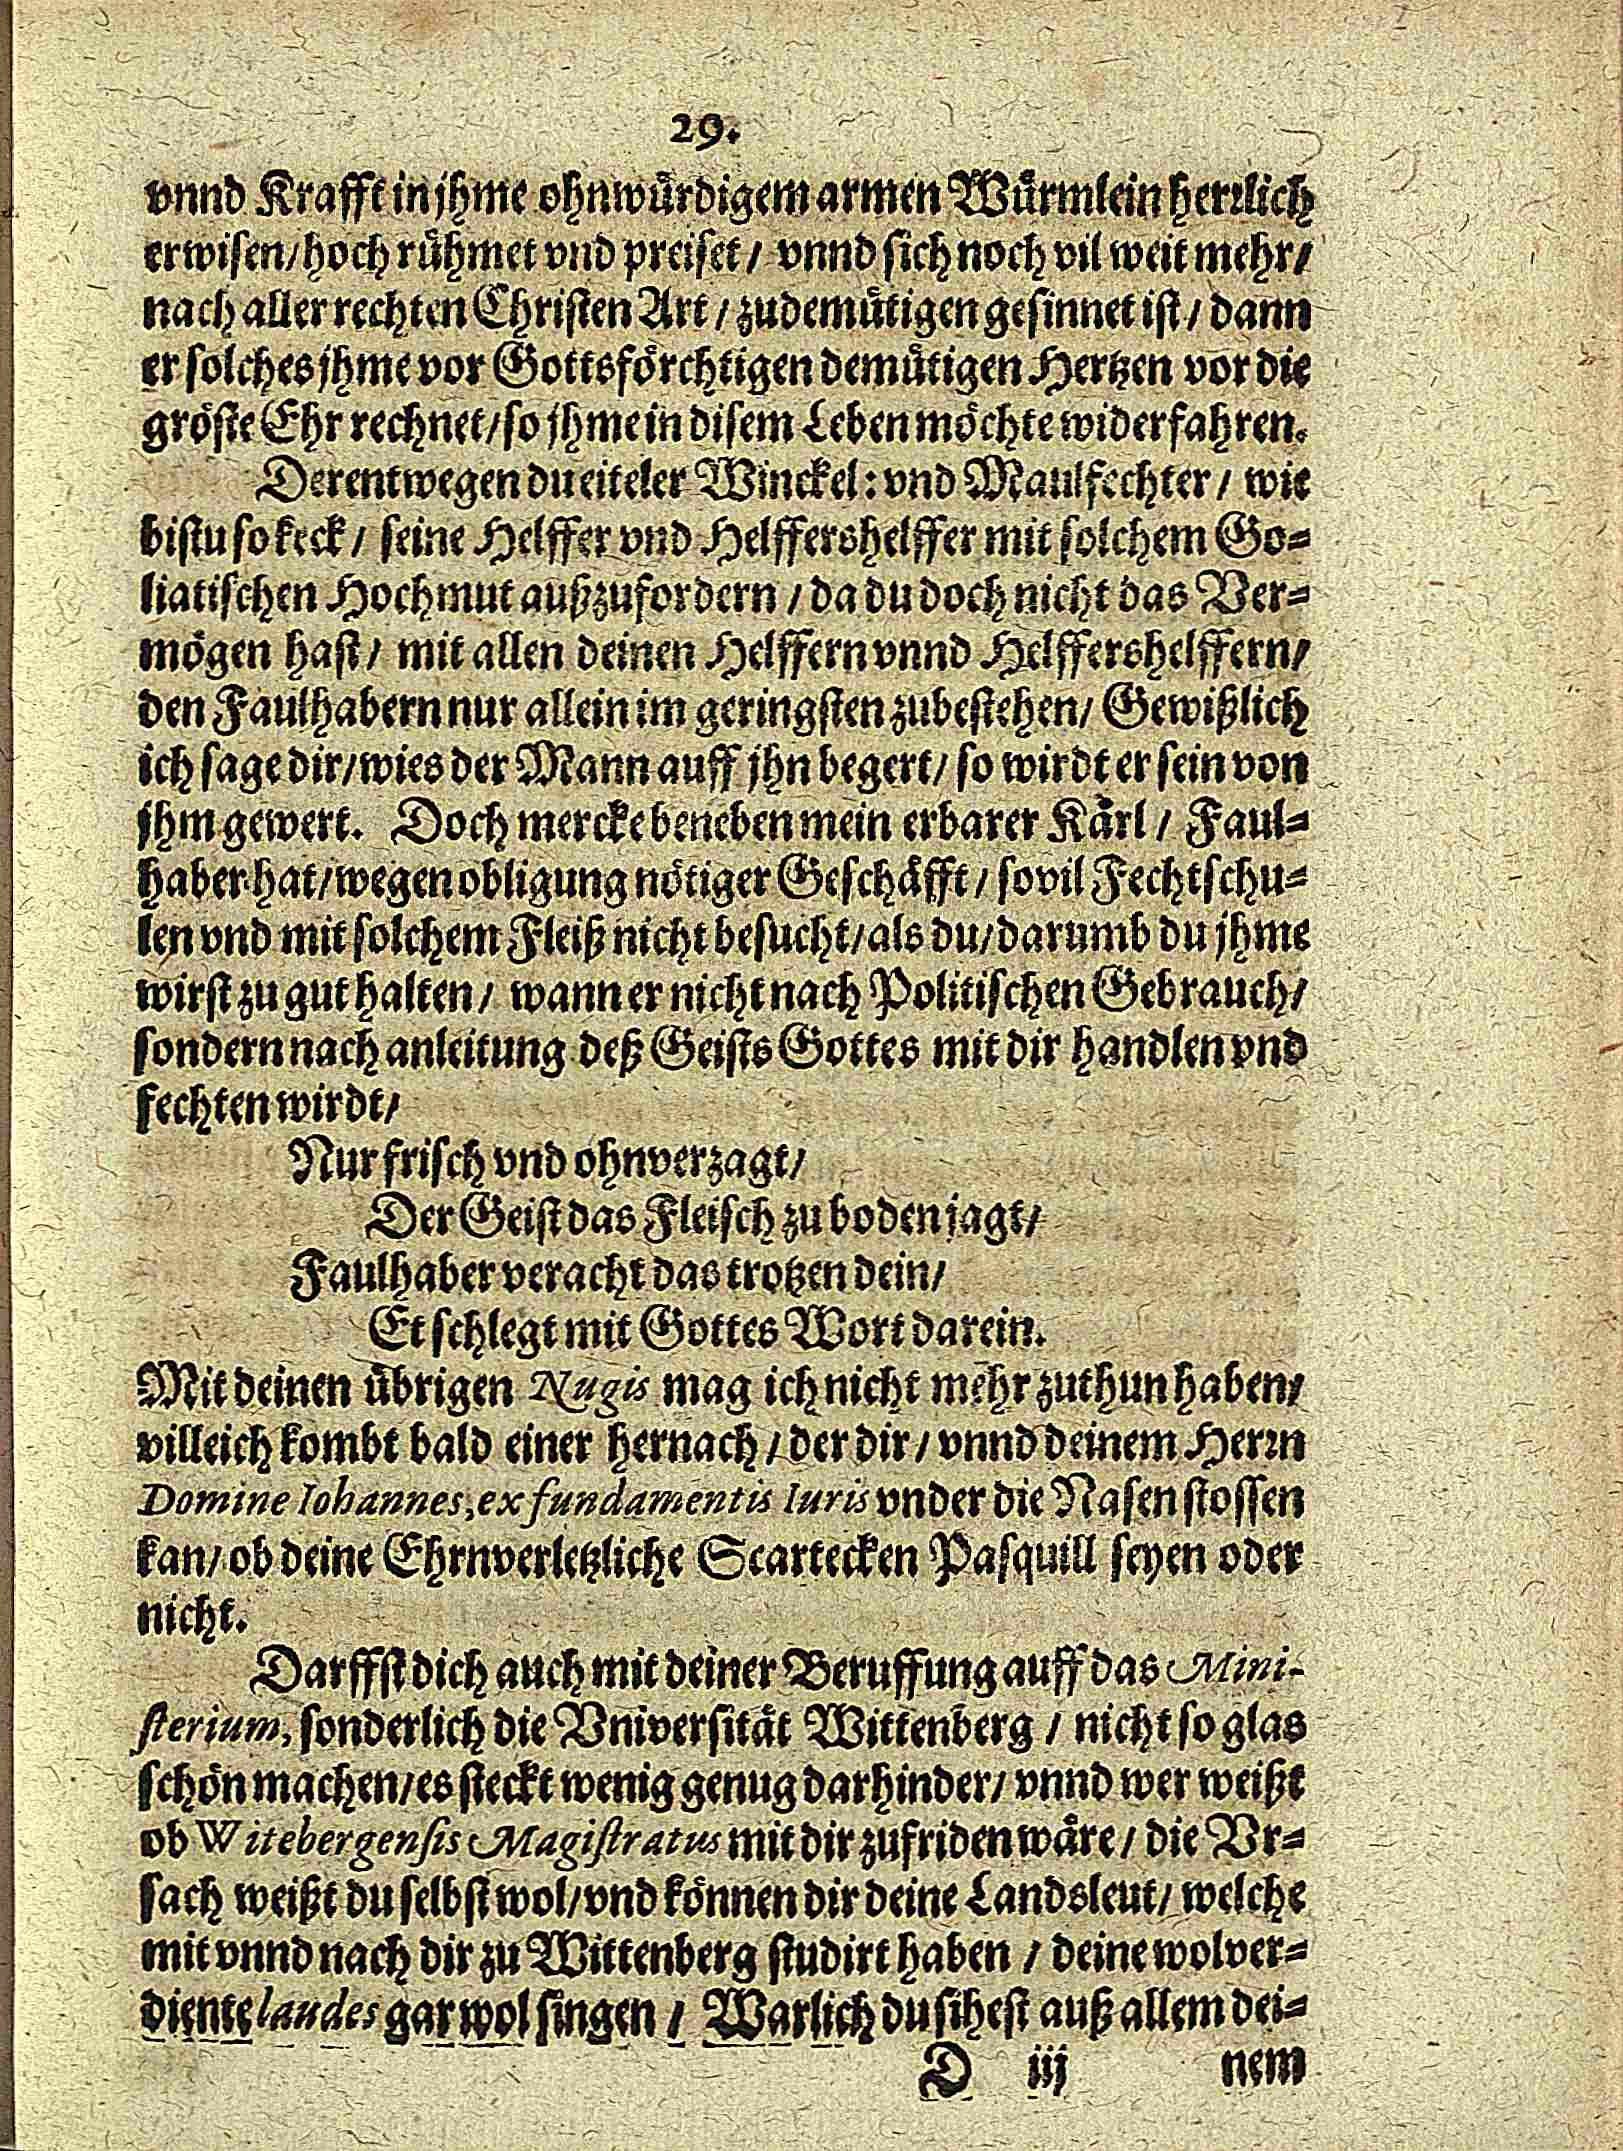 29.
vnnd Krafft in jhme ohnwürdigem armen Würmlein herrlich
erwisen/ hoch rühmet vnd preiset/ vnnd sich noch vil weit mehr/
nach aller rechten Christen Art/ zudemütigen gesinnet ist/ dann
er solches jhme vor Gottsförchtigen demütigen Hertzen vor die
gröste Ehr rechnet/ so jhme in disem Leben möchte widerfahren.
Derentwegen du eiteler Winckel: vnd Maulfechter/ wie
bistu so keck/ seine Helffer vnd Helffershelffer mit solchem Go-
liatischen Hochmut außzufordern/ da du doch nicht das Ver-
mögen hast/ mit allen deinen Helffern vnnd Helffershelffern/
den Faulhabern nur allein im geringsten zubestehen/ Gewißlich
ich sage dir/ wies der Mann auff jhn begert/ so wirdt er sein von
jhm gewert. Doch mercke beneben mein erbarer Kärl/ Faul-
haber hat/ wegen obligung nötiger Geschäfft/ sovil Fechtschu-
len vnd mit solchem Fleiß nicht besucht/ als du/ darumb du jhme
wirst zu gut halten/ wann er nicht nach Politischen Gebrauch/
sondern nach anleitung deß Geists Gottes mit dir handlen vnd
fechten wirdt/
Nur frisch vnd ohnverzagt/
Der Geist das Fleisch zu boden jagt/
Faulhaber veracht das trotzen dein/
Et schlegt mit Gottes Wort darein.
Mit deinen übrigen Nugis mag ich nicht mehr zuthun haben/
villeich kombt bald einer hernach/ der dir/ vnnd deinem Herrn
Domine Iohannes, ex fundamentis Iuris vnder die Nasen stossen
kan/ ob deine Ehrnverletzliche Scartecken Pasquill seyen oder
nicht.
Darffst dich auch mit deiner Beruffung auff das Mini-
sterium, sonderlich die Vniversität Wittenberg/ nicht so glas
schön machen/ es steckt wenig genug darhinder/ vnnd wer weißt
ob Witebergensis Magistratus mit dir zufriden wäre/ die Vr-
sach weißt du selbst wol/ vnd können dir deine Landsleut/ welche
mit vnnd nach dir zu Wittenberg studirt haben/ deine wolver-
diente laudes gar wol singen/ Warlich du sihest auß allem dei-
D iij nem